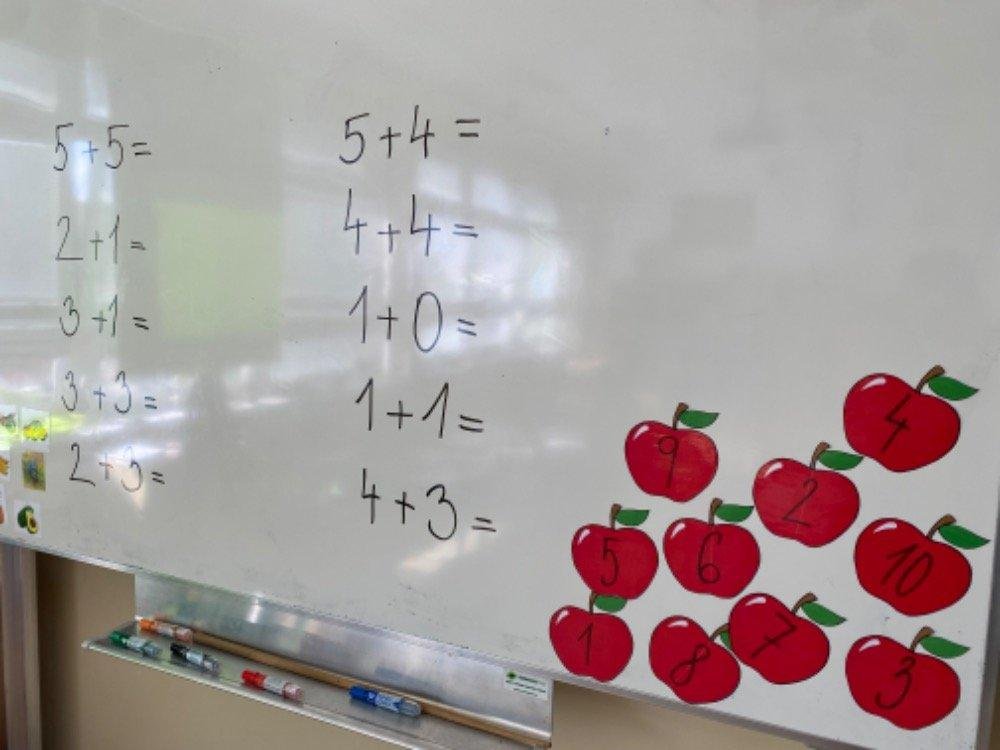 5+5=
2+1=
3+1=
3+3=
2+3=
5+4=
4+4=
1+0=
1+1=
4+3=
4
9
2
5
6
10
1
8
7
3